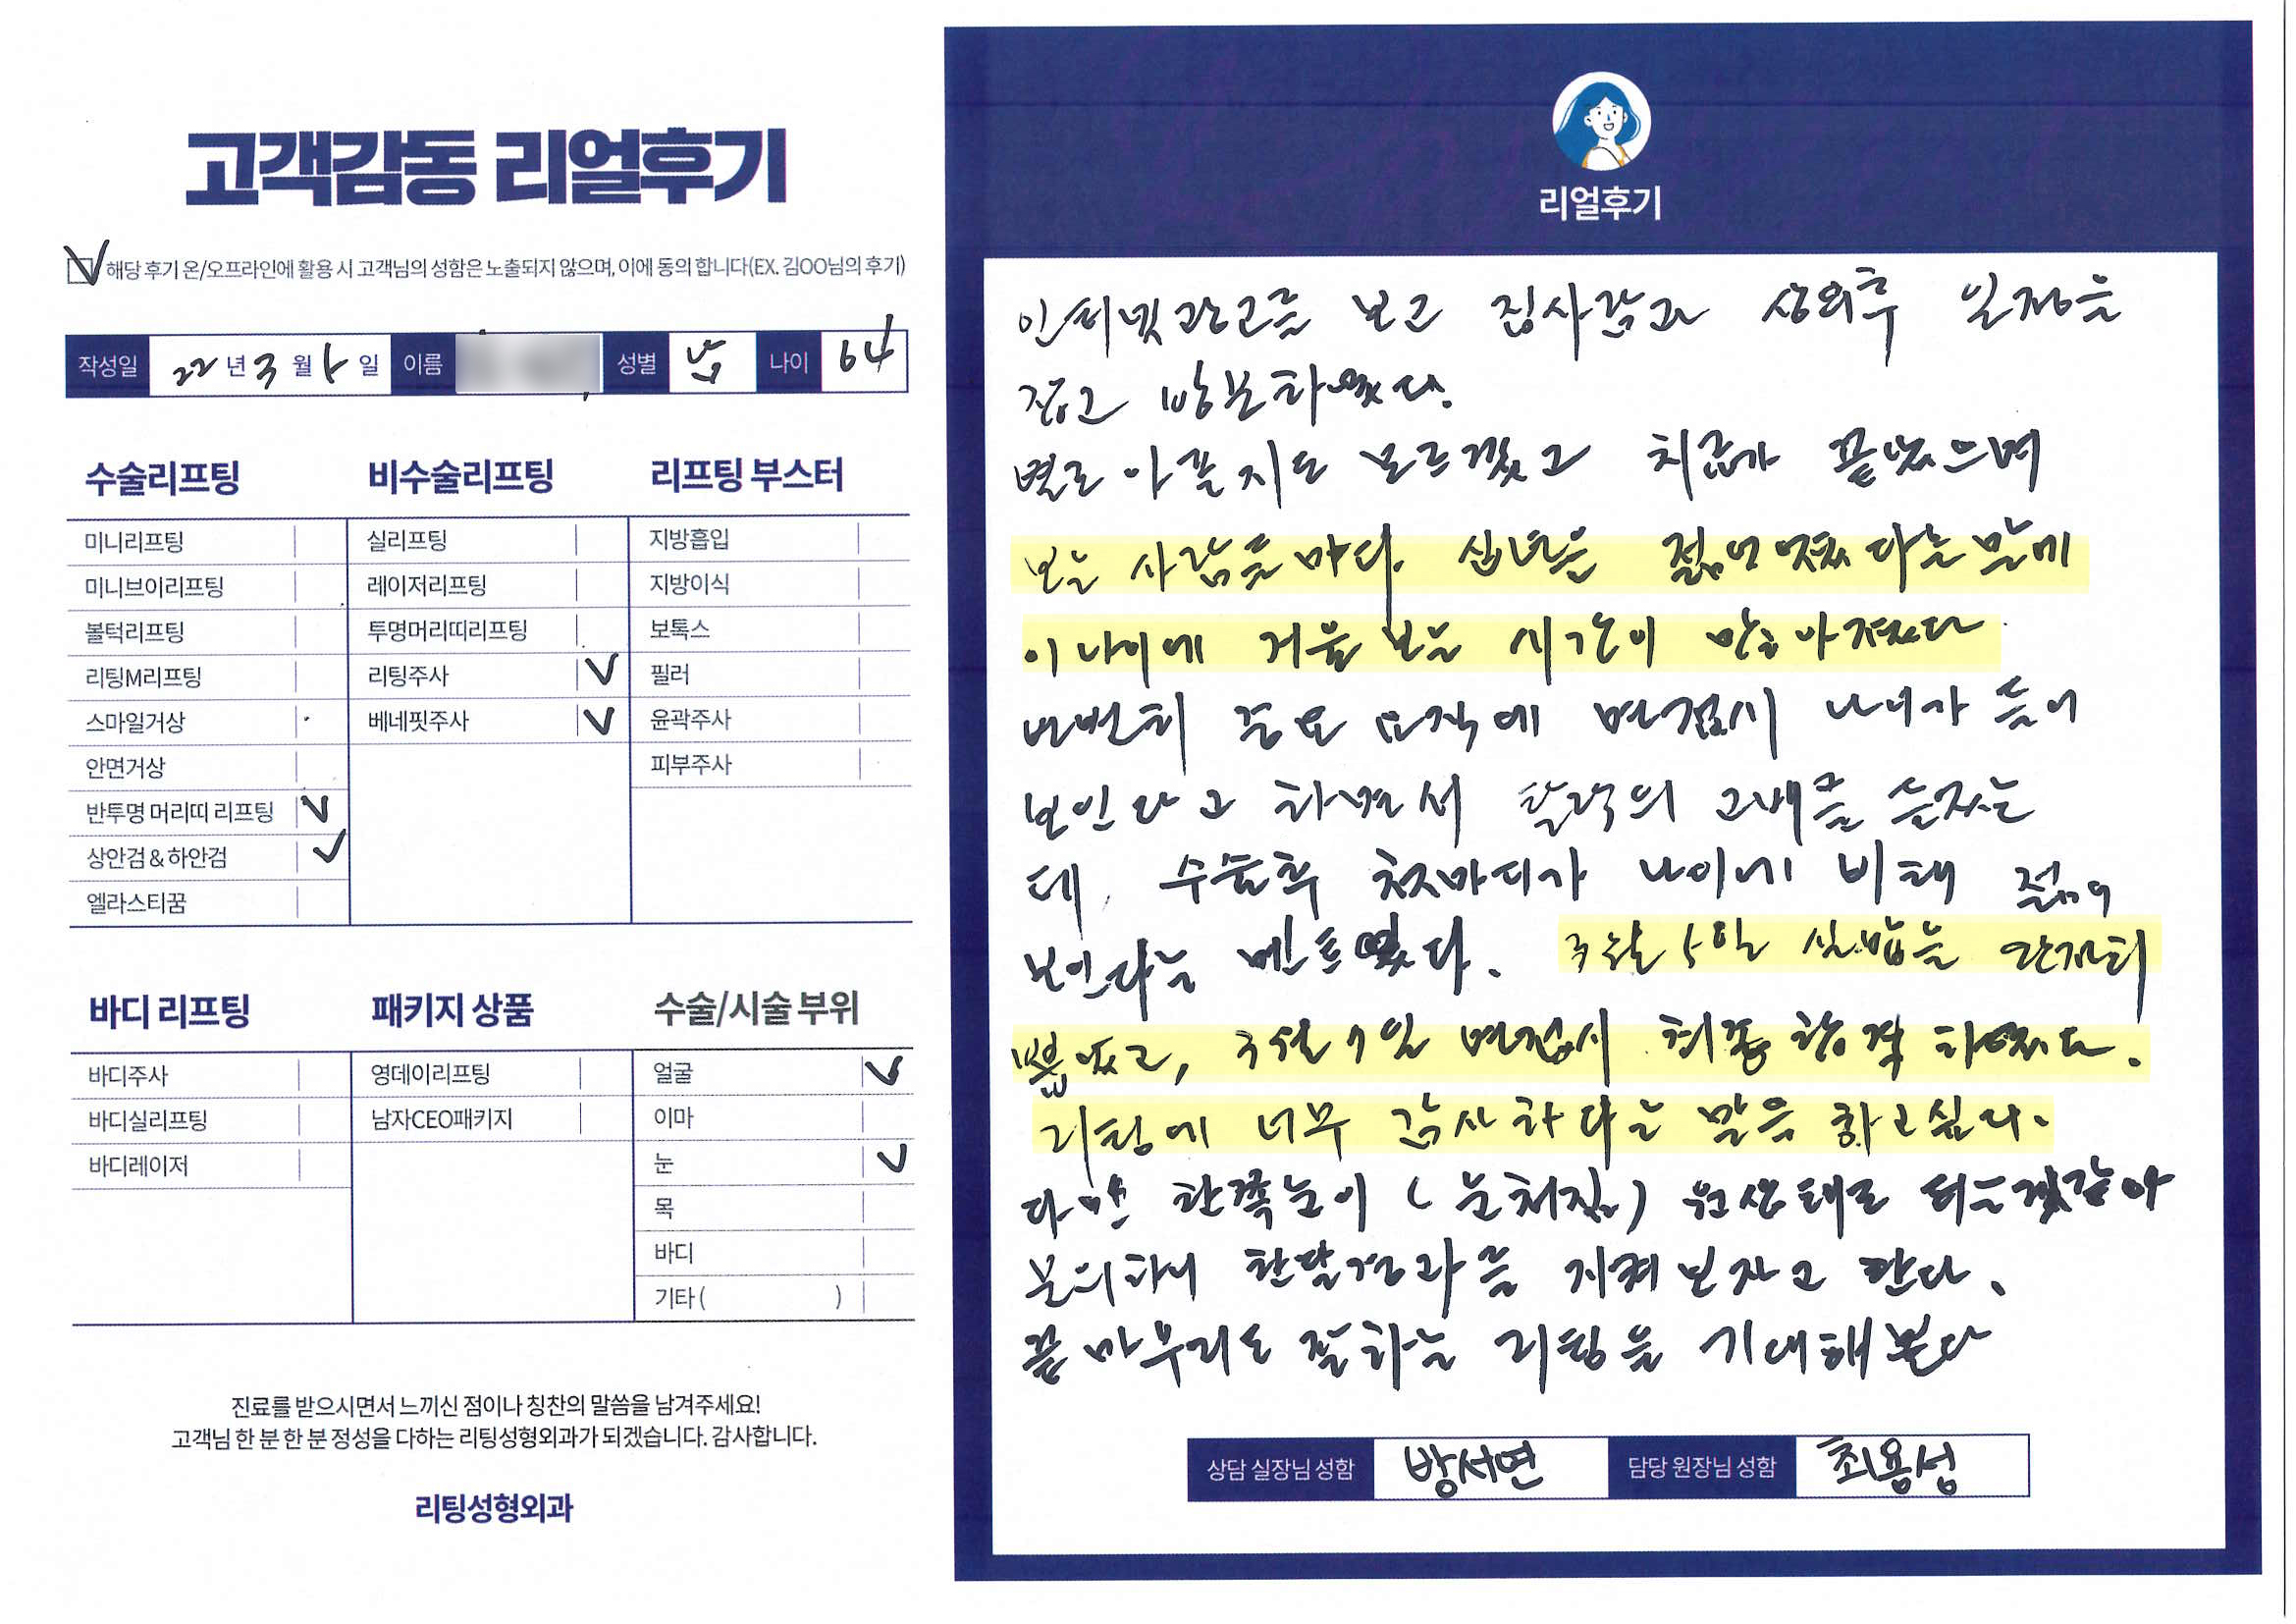 고객감동 리얼후기
해당 후기 온/오프라인에 활용 시 고객님의 성함은 노출되지 않으며, 이에 동의 합니다(EX. 김OO님의 후기)
작성일 22년 3월 일 이름 성별 남 나이 64
수술리프팅
미니리프팅
미니브이리프팅
볼턱리프팅
리팅M리프팅
스마일거상
안면거상
반투명 머리띠 리프팅
상안검&하안검
엘라스티꿈
비수술리프팅
실리프팅
레이저리프팅
투명머리띠리프팅
리팅주사
베네핏주사
리프팅 부스터
지방흡입
지방이식
보톡스
필러
윤곽주사
피부주사
바디 리프팅
바디주사
바디실리프팅
바디레이저
패키지 상품
영데이리프팅
남자CEO패키지
수술/시술 부위
얼굴
이마
눈
목
바디
기타 ( )
진료를 받으시면서 느끼신 점이나 칭찬의 말씀을 남겨주세요!
고객님 한 분 한 분 정성을 다하는 리팅성형외과가 되겠습니다. 감사합니다.
리팅성형외과
리얼후기
인터넷광고를 보고 집사람과 상의후 일정을
잡고 방문하였다.
별로 아픈지도 모르겠고 치료가 끝났으며
보는 사람들마다 십년은 젊어졌다는 말에
이 나이에 거울 보는 시간이 많아졌다
번번히 중요 요직에 면접시 나이가 들어
보인다고 하면서 탈락의 고배를 들었는
데, 수술후 첫마디가 나이에 비해 젊어
보인다는 멘트였다. 3월 5일 실밥을 완전히
뽑았고, 3월 7일 면접시 최종 합격 하였다.
리팅에 너무 감사하다는 말을 하고싶다.
다만 한쪽눈이 (눈처짐) 원상태로 되는것같아
문의하니 한달경과를 지켜보자고 한다.
끝마무리도 잘하는 리팅을 기대해본다
상담 실장님 성함 방서연 담당 원장님 성함 최용성